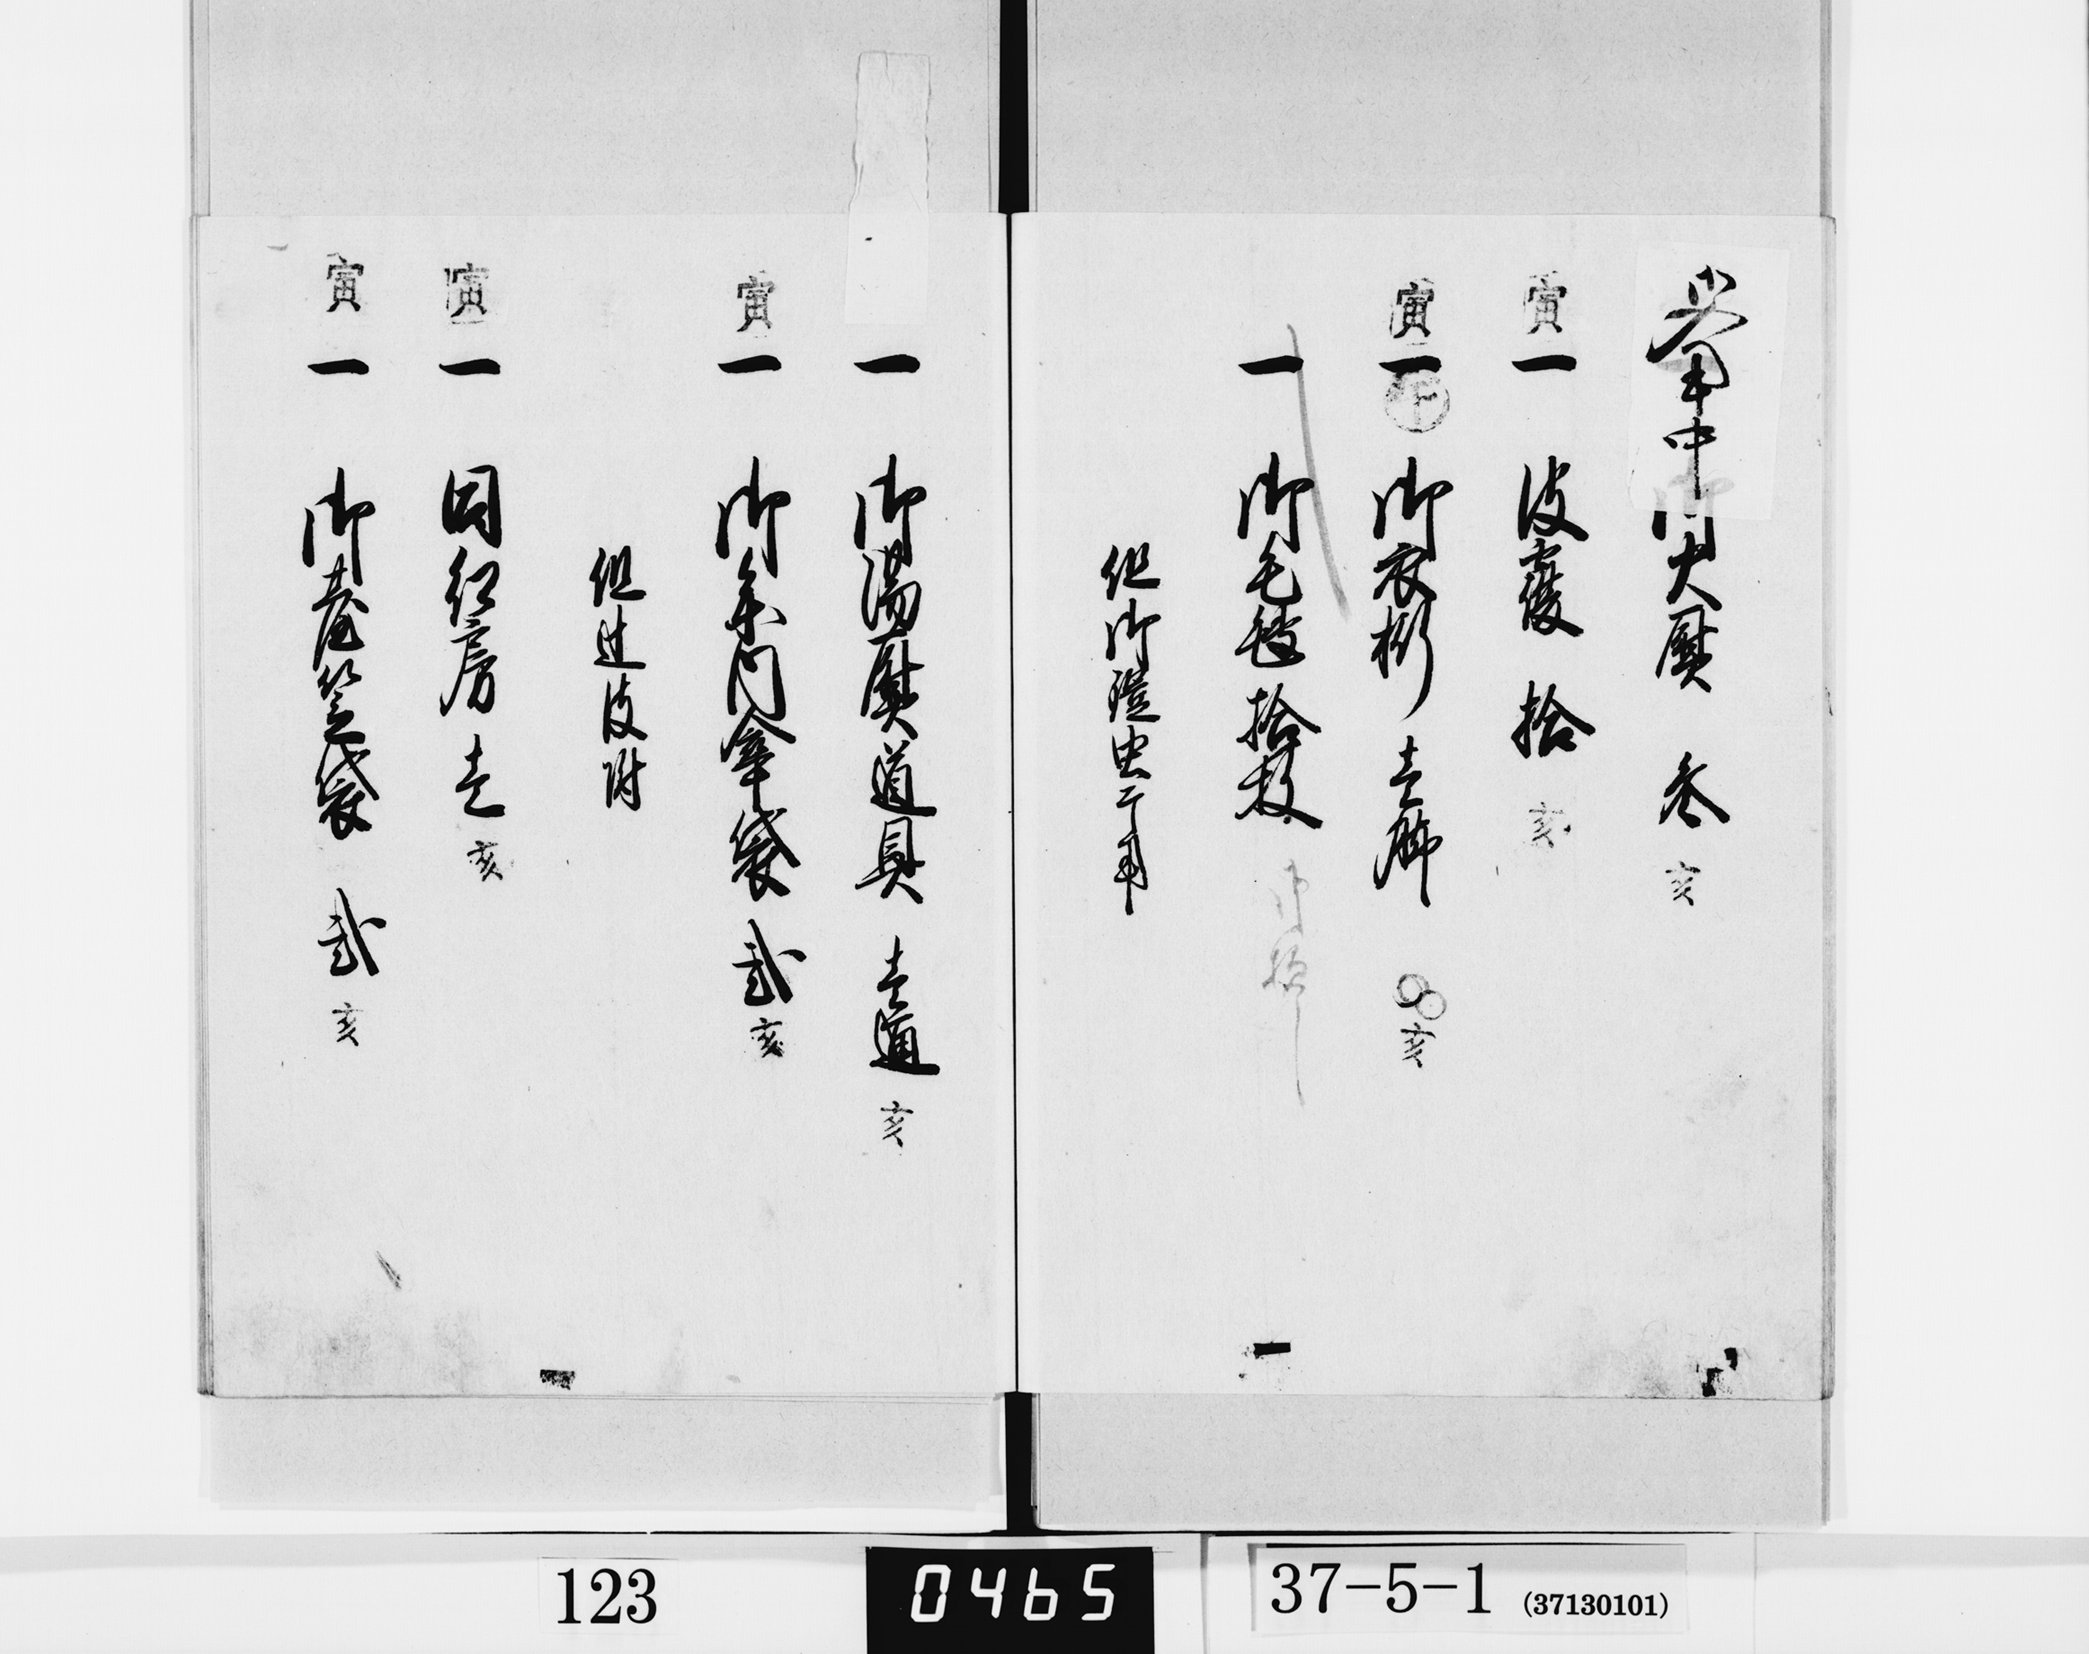 用中
御大熨 参 亥
寅 一 皮覆 拾 亥
寅 一 下 御衣桁 壱脚 亥
一 御毛氈 拾枚
但御鎧虫干用
一 御湯熨道具 壱通 亥
寅 一 御参内傘袋 弐 亥
但辻皮附
寅 一 同紅房 壱 亥
寅 一 御臺笠袋 弐 亥
123
0465
37-5-1 (37130101)